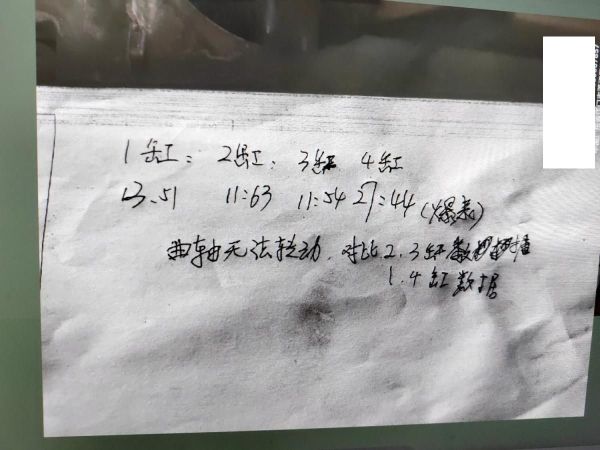 1缸: 2缸: 3缸 4缸
13.51 11:63 11:54 27:44(爆表)
曲轴无法转动. 对比2.3缸数据
1.4缸数据